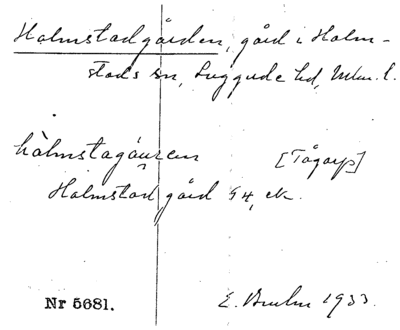 Holmstadgården, gård i Holm-
stads sn, Luggude hd, Mlm. l.
hòlmstagáu̯ren [Tågarp]
Holmstad, gård 54, ek.
Nr 5681. E. 1933